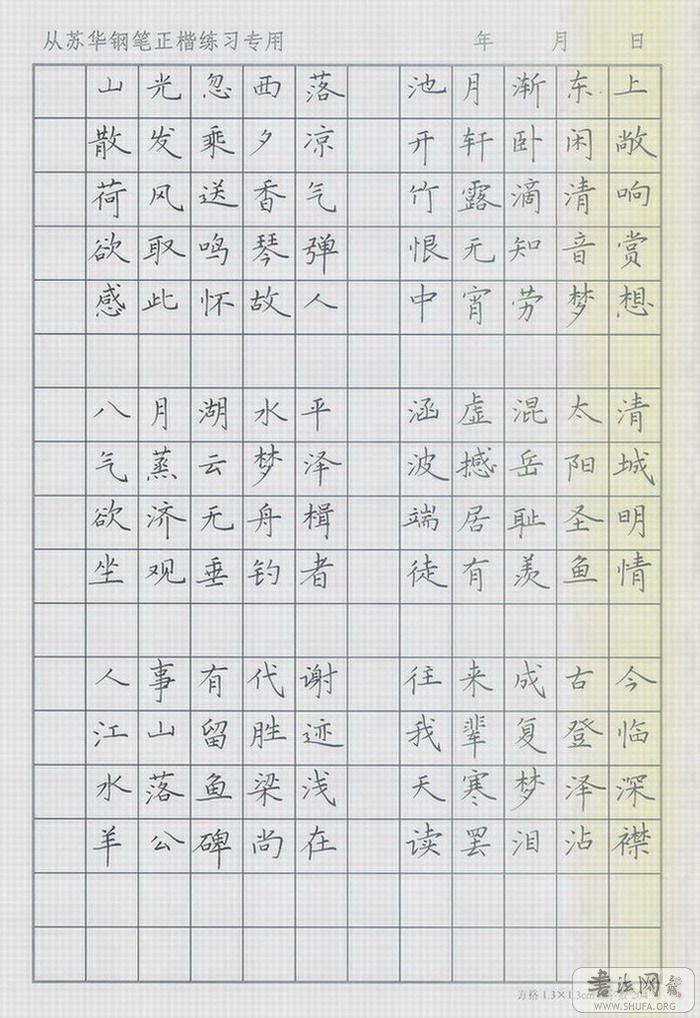 从苏华钢笔正楷练习专用 年 月 日
山光忽西落 池月渐东上
散发乘夕凉 开轩卧闲敞
荷风送香气 竹露滴清响
欲取鸣琴弹 恨无知音赏
感此怀故人 中宵劳梦想
八月湖水平 涵虚混太清
气蒸云梦泽 波撼岳阳城
欲济无舟楫 端居耻圣明
坐观垂钓者 徒有羡鱼情
人事有代谢 往来成古今
江山留胜迹 我辈复登临
水落鱼梁浅 天寒梦泽深
羊公碑尚在 读罢泪沾襟
方格 1.3×1.3cm
书法网
WWW.SHUFA.ORG